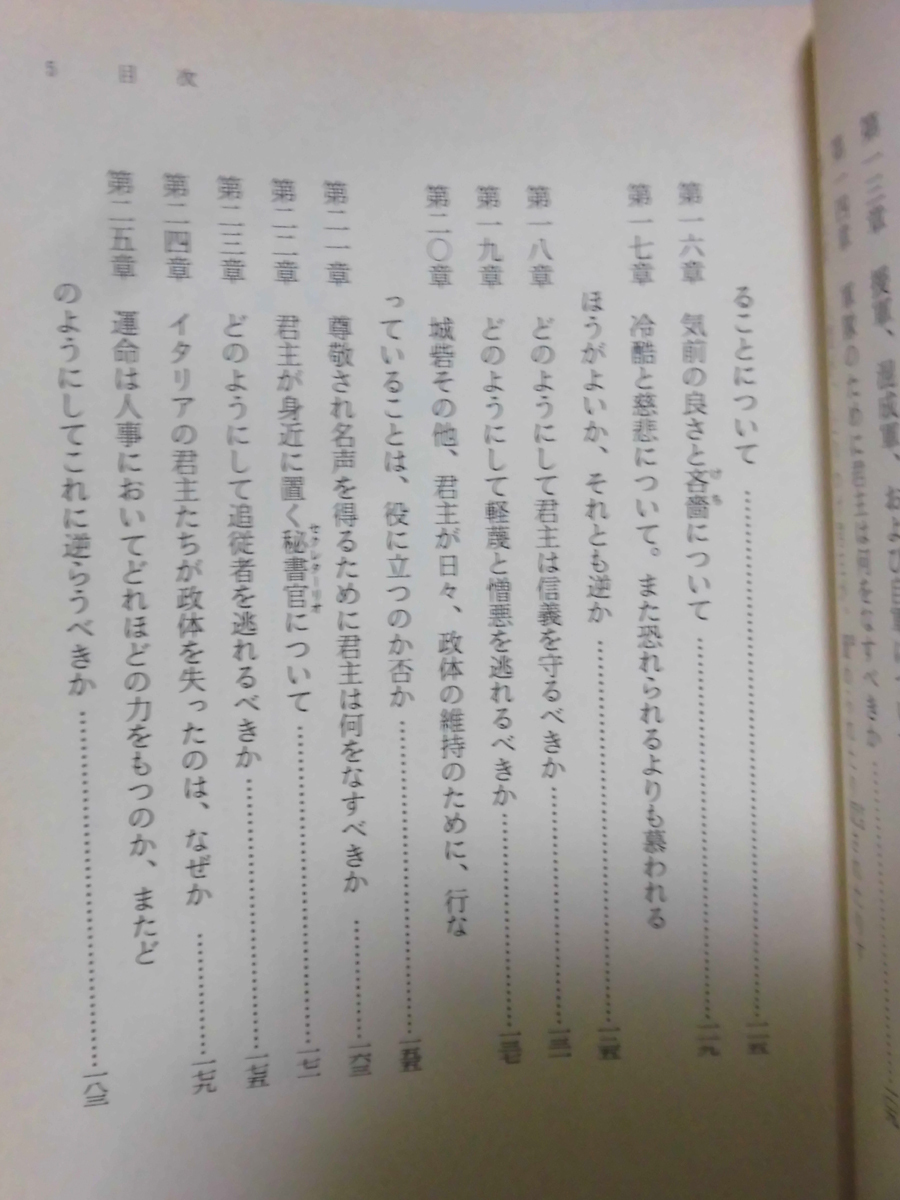 第一三章 援軍、混成軍、および自軍
第一四章 軍事のために君主は何をなすべきか
5 目次
ることについて……一一五
第一六章 気前の良さと吝嗇について……一一九
第一七章 冷酷と慈悲について。また恐れられるよりも慕われる
ほうがよいか、それとも逆か……一二五
第一八章 どのようにして君主は信義を守るべきか……一三一
第一九章 どのようにして軽蔑と憎悪を逃れるべきか……一三七
第二〇章 城砦その他、君主が日々、政体の維持のために、行な
っていることは、役に立つのか否か……一五五
第二一章 尊敬され名声を得るために君主は何をなすべきか……一六三
第二二章 君主が身近に置く秘書官について……一七一
第二三章 どのようにして追従者を逃れるべきか……一七五
第二四章 イタリアの君主たちが政体を失ったのは、なぜか……一七九
第二五章 運命は人事においてどれほどの力をもつのか、またど
のようにしてこれに逆らうべきか……一八三